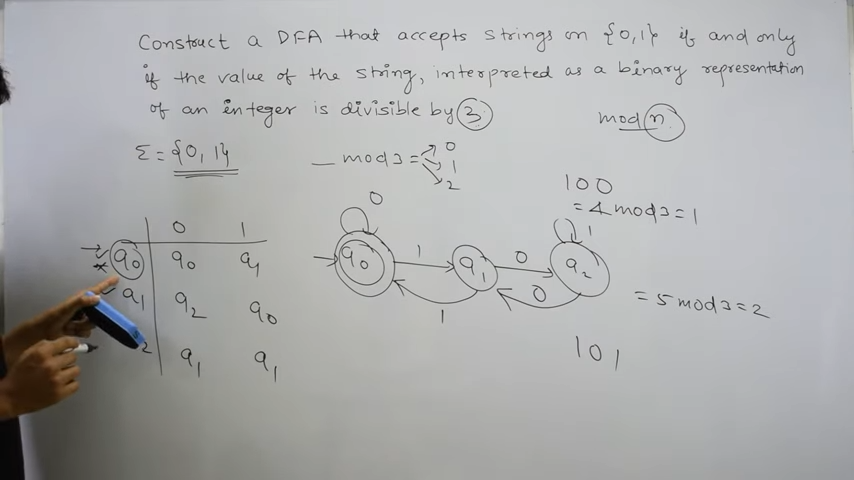 Construct a DFA that accepts strings on {0,1} if and only
if the value of the string, interpreted as a binary representation
of an integer is divisible by 3.
mod n
Σ = {0, 1}
_ mod 3 = 0
1
2
100
= 4 mod 3 = 1
0 1
→ * q0 q0 q1
q1 q2 q0
2 q1 q1
0
q0 1 q1 0 q2 1
1 0
= 5 mod 3 = 2
101